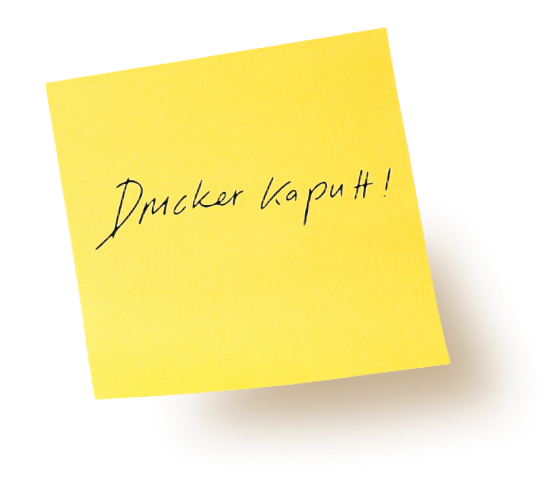 Drucker kaputt!